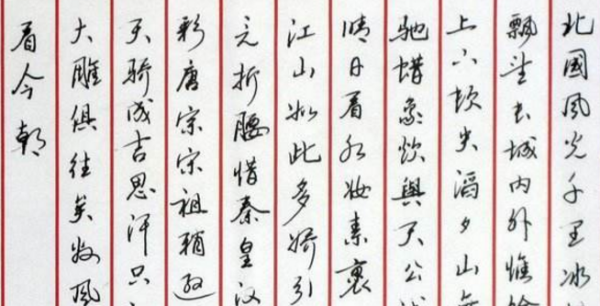 北國風光千里冰
飄望长城内外惟
上下顿失滔々山
驰蜡象欲與天公
晴日看红妆素裹
江山如此多娇引
竞折腰惜秦皇汉
彩唐宗宋祖稍逊
天骄成吉思汗只
大雕俱往矣数风
看今朝